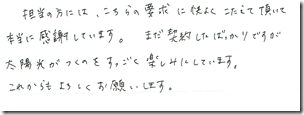 担当の方には、こちらの要求に快よくこたえて頂いて
本当に感謝しています。まだ契約したばっかりですが
太陽光がつくのをすっごく楽しみにしています。
これからもよろしくお願いします。